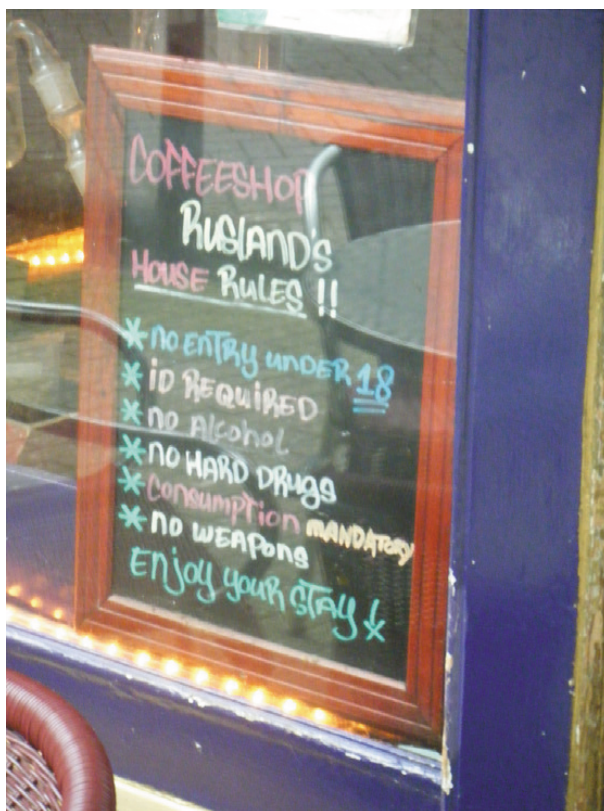 COFFEESHOP
RUSLAND'S
HOUSE RULES !!
* NO ENTRY UNDER 18
* ID REQUIRED
* NO ALCOHOL
* NO HARD DRUGS
* CONSUMPTION MANDATORY
* NO WEAPONS
ENJOY YOUR STAY